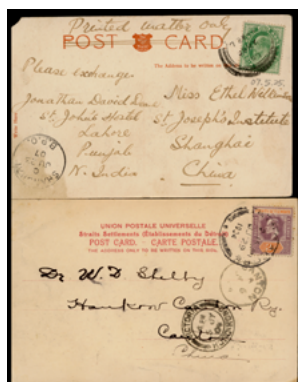 Printed matter only
POST CARD
The Address to be written on
Please exchange
Jonathan David
St. John's Hostel
Lahore
Punjab
N. India
Miss Ethel
St. Joseph's Institute
Shanghai
China
UNION POSTALE UNIVERSELLE
Straits Settlements (Établissements du Détroit)
POST CARD. - CARTE POSTALE.
THE ADDRESS ONLY TO BE WRITTEN ON THIS SIDE.
Dr W. D. Shelby
Hankow Canton Ry.
Canton
China